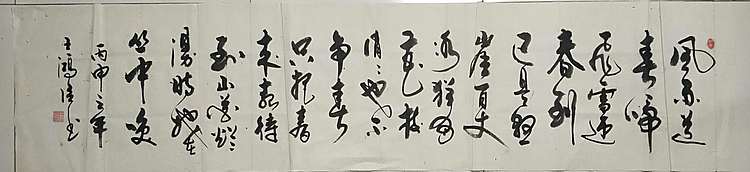 风雨送
春归
飞雪迎
春到
已是悬
崖百丈
冰犹有
花枝
俏〻也不
争春
只把春
来报待
到山花烂
漫时她在
丛中笑
丙申年
王鸿书